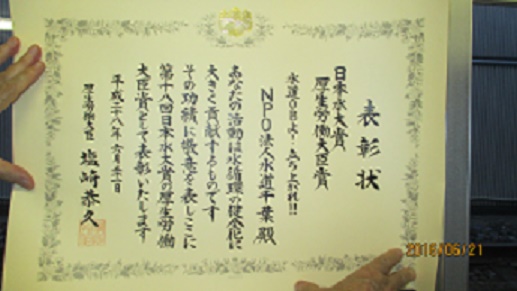 表彰状
日本水大賞
厚生労働大臣賞
NPO法人水道千葉殿
あなたの活動は水循環の健全化に
大きく貢献するものです
その功績に敬意を表しここに
第十八回日本水大賞の厚生労働
大臣賞として表彰いたします
平成二十八年六月二十一日
厚生労働大臣 塩崎恭久
2016/06/21